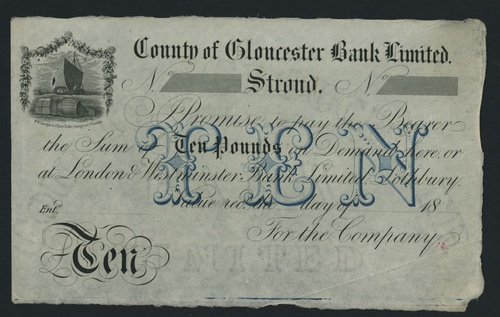 County of Gloucester Bank Limited.
No Stroud. No
I Promise to pay the Bearer
the Sum of Ten Pounds on Demand here, or
at London & Westminster Bank Limited, Lothbury.
Value recd. the day of 18
Entd.
For the Company
£Ten
TEN